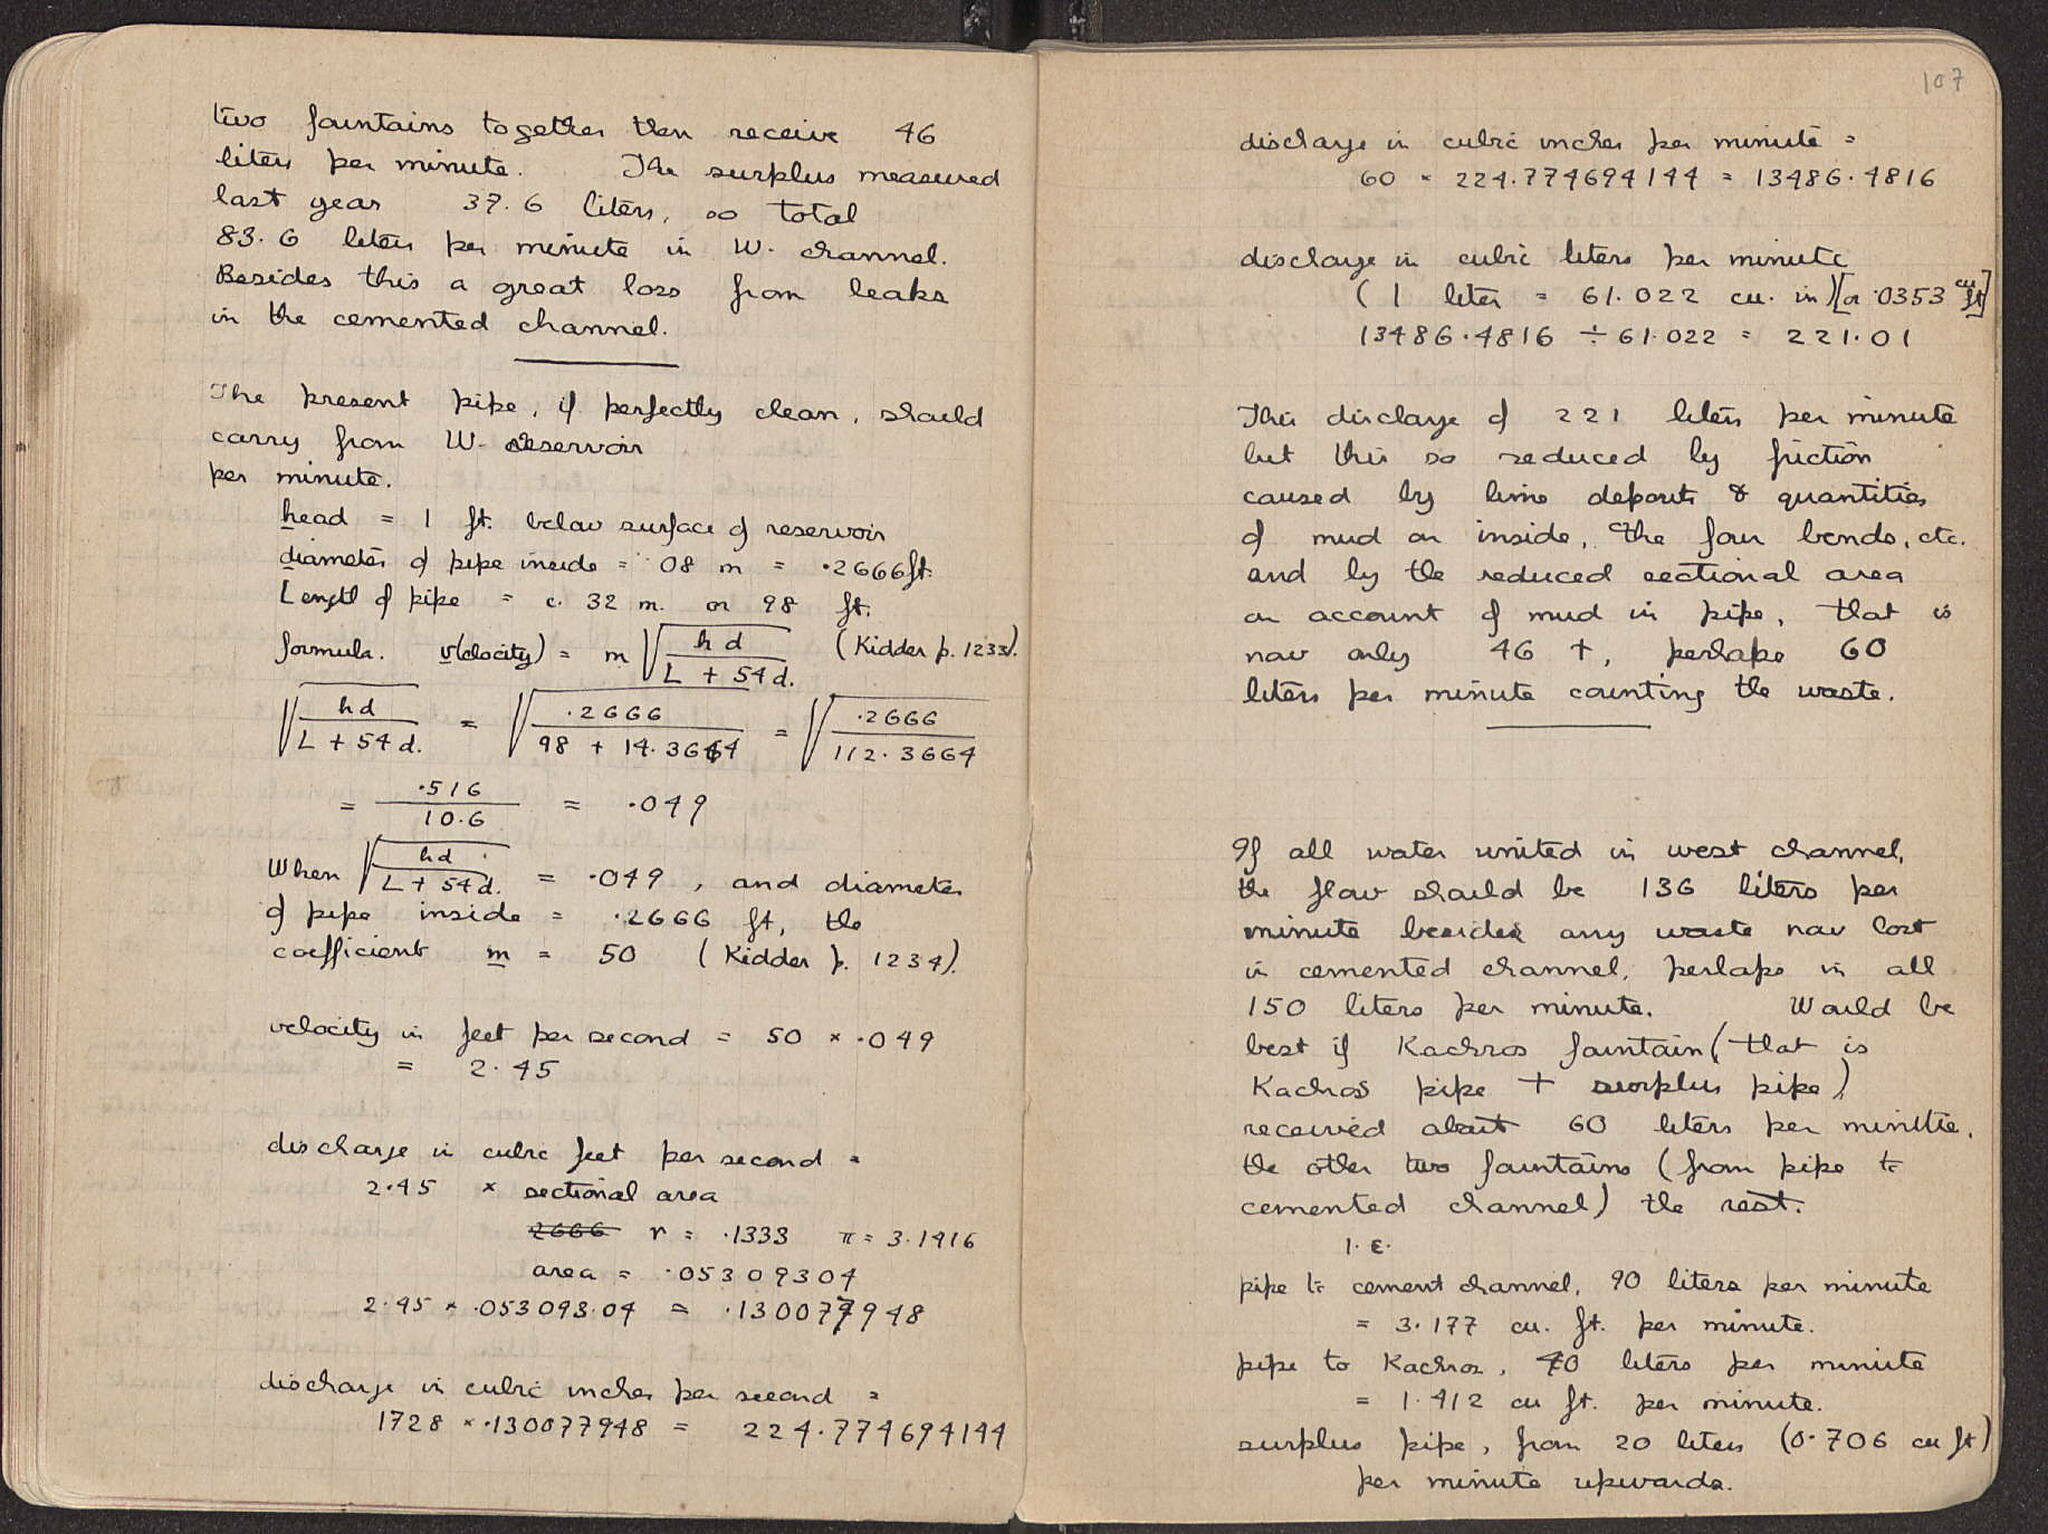 two fountains together then receive 46
liters per minute. The surplus measured
last year 37.6 liters, so total
83.6 liters per minute in W. channel.
Besides this a great loss from leaks
in the cemented channel.
The present pipe, if perfectly clean, should
carry from W. reservoir
per minute.
head = 1 ft. below surface of reservoir
diameter of pipe inside = .08 m = .2666 ft.
Length of pipe = c. 32 m. or 98 ft.
formula. v(elocity) = m √ h d / L + 54 d. (Kidder p. 1233).
√ hd / L + 54 d. = √ .2666 / 98 + 14.3664 = √ .2666 / 112.3664
= .516 / 10.6 = .049
When √ hd / L + 54 d. = .049, and diameter
of pipe inside = .2666 ft, the
coefficient m = 50 (Kidder p. 1234).
velocity in feet per second = 50 × .049
= 2.45
discharge in cubic feet per second =
2.45 × sectional area
2666 r = .1333 π = 3.1416
area = .05309304
2.45 × .05309304 = .130077948
discharge in cubic inches per second =
1728 × .130077948 = 224.774694144
107
discharge in cubic inches per minute =
60 × 224.774694144 = 13486.4816
discharge in cubic liters per minute
(1 liter = 61.022 cu. in) [or .0353 cu ft]
13486.4816 ÷ 61.022 = 221.01
This discharge of 221 liters per minute
but this so reduced by friction
caused by lime deposits & quantities
of mud on inside, the four bends, etc.
and by the reduced sectional area
on account of mud in pipe, that is
now only 46 +, perhaps 60
liters per minute counting the waste.
If all water united in west channel,
the flow should be 136 liters per
minute besides any waste now lost
in cemented channel, perhaps in all
150 liters per minute. Would be
best if Kachros fountain (that is
Kachros pipe + surplus pipe)
received about 60 liters per minute,
the other two fountains (from pipe to
cemented channel) the rest.
I.E.
pipe to cement channel, 90 liters per minute
= 3.177 cu. ft. per minute.
pipe to Kachros, 40 liters per minute
= 1.412 cu ft. per minute.
surplus pipe, from 20 liters (0.706 cu ft)
per minute upwards.